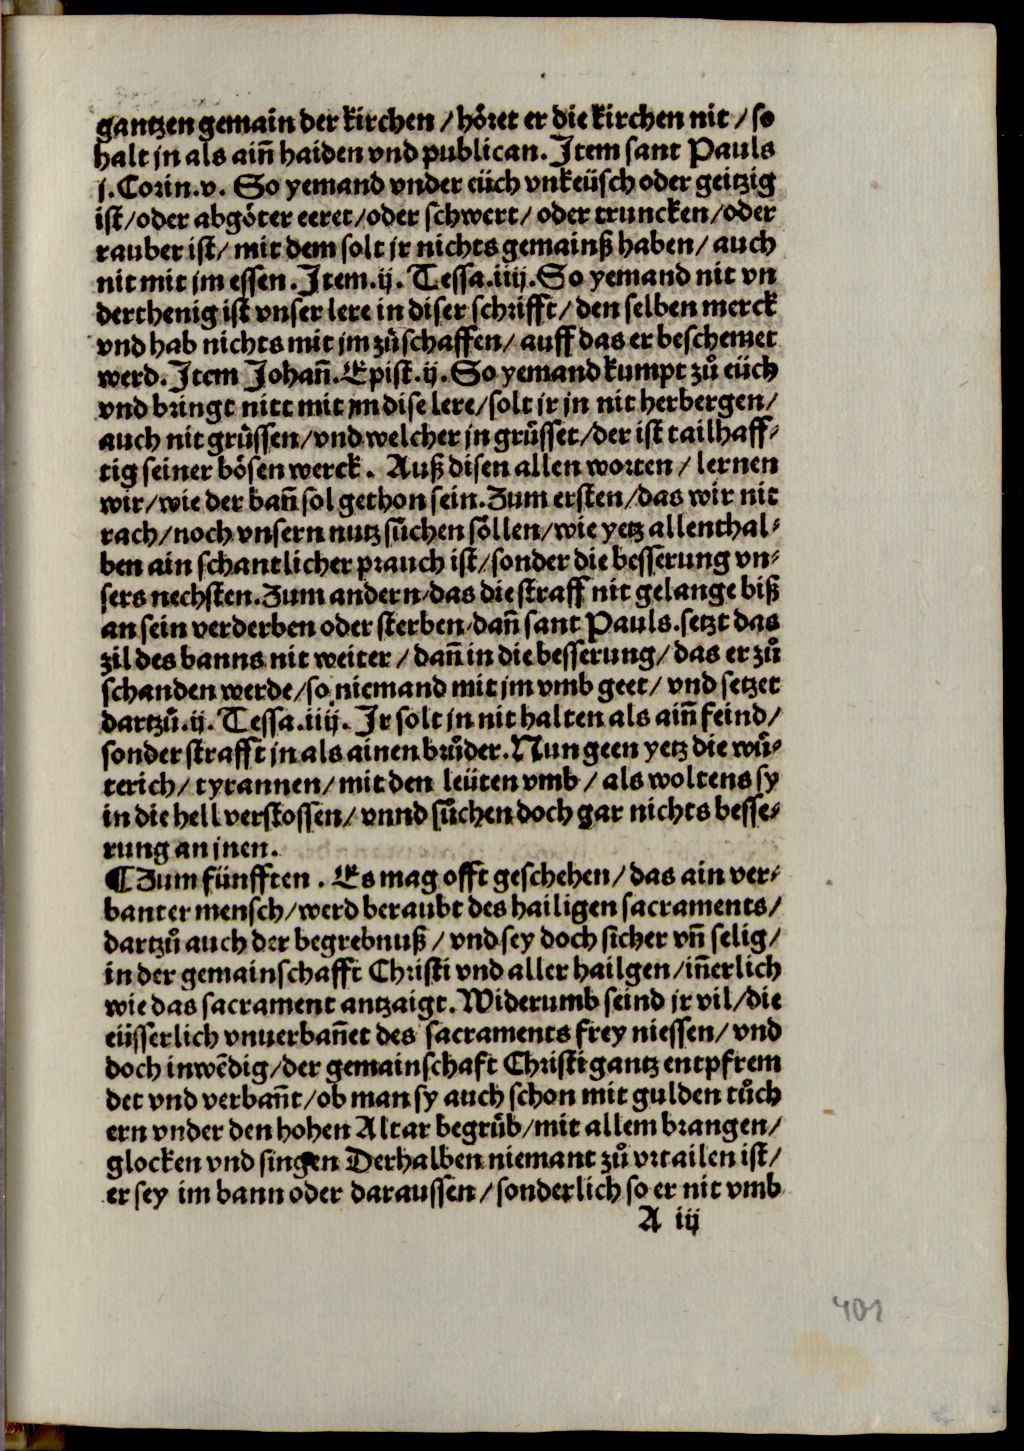 gantzen gemain der kirchen / höret er die kirchen nit / so
halt jn als aiñ haiden vnd publican. Item sant Pauls
j. Corin. v. So yemand vnder eüch vnkeüsch oder geitzig
ist / oder abgöter eeret / oder schwert / oder truncken / oder
rauber ist / mit dem solt jr nichts gemainß haben / auch
nit mit jm essen. Item. ij. Tessa. iiij. So yemand nit vn
derthenig ist vnser lere in diser schrifft / den selben merck
vnd hab nichts mit jm zů schaffen / auff das er beschemet
werd. Item Johañ. Epist. ij. So yemand kumpt zů eüch
vnd bringt nitt mit jm dise lere / solt jr jn nit herbergen /
auch nit grüssen / vnd welcher jn grüsset / der ist tailhaff⸗
tig seiner bösen werck. Auß disen allen worten / lernen
wir / wie der bañ sol gethon sein. Zum ersten / das wir nit
rach / noch vnsern nutz sůchen söllen / wie yetz allenthal⸗
ben ain schantlicher prauch ist / sonder die besserung vn⸗
sers nechsten. Zum andern / das die straff nit gelange biß
an sein verderben oder sterben / dañ sant Pauls. setzt das
zil des banns nit weiter / dañ in die besserung / das er zů
schanden werde / so niemand mit jm vmb geet / vnd setzet
dartzů. ij. Tessa. iiij. Ir solt jn nit halten als aiñ feind /
sonder strafft jn als ainen brůder. Nun geen yetz die wů⸗
terich / tyrannen / mit den leüten vmb / als woltens sy
in die hell verstossen / vnnd sůchen doch gar nichts besse⸗
rung an jnen.
¶ Zum fünfften. Es mag offt geschehen / das ain ver⸗
banter mensch / werd beraubt des hailigen sacraments /
dartzů auch der begrebnuß / vnd sey doch sicher vñ selig /
in der gemainschafft Christi vnd aller hailgen / iñerlich
wie das sacrament antzaigt. Widerumb seind jr vil / die
eüsserlich vnuerbañet des sacraments frey niessen / vnd
doch inwẽdig / der gemainschaft Christi gantz entpfrem
det vnd verbañt / ob man sy auch schon mit gulden tůch
ern vnder den hohen Altar begrüb / mit allem brangen /
glocken vnd singen Derhalben niemant zů vrtailen ist /
er sey im bann oder daraussen / sonderlich so er nit vmb
A iij
401